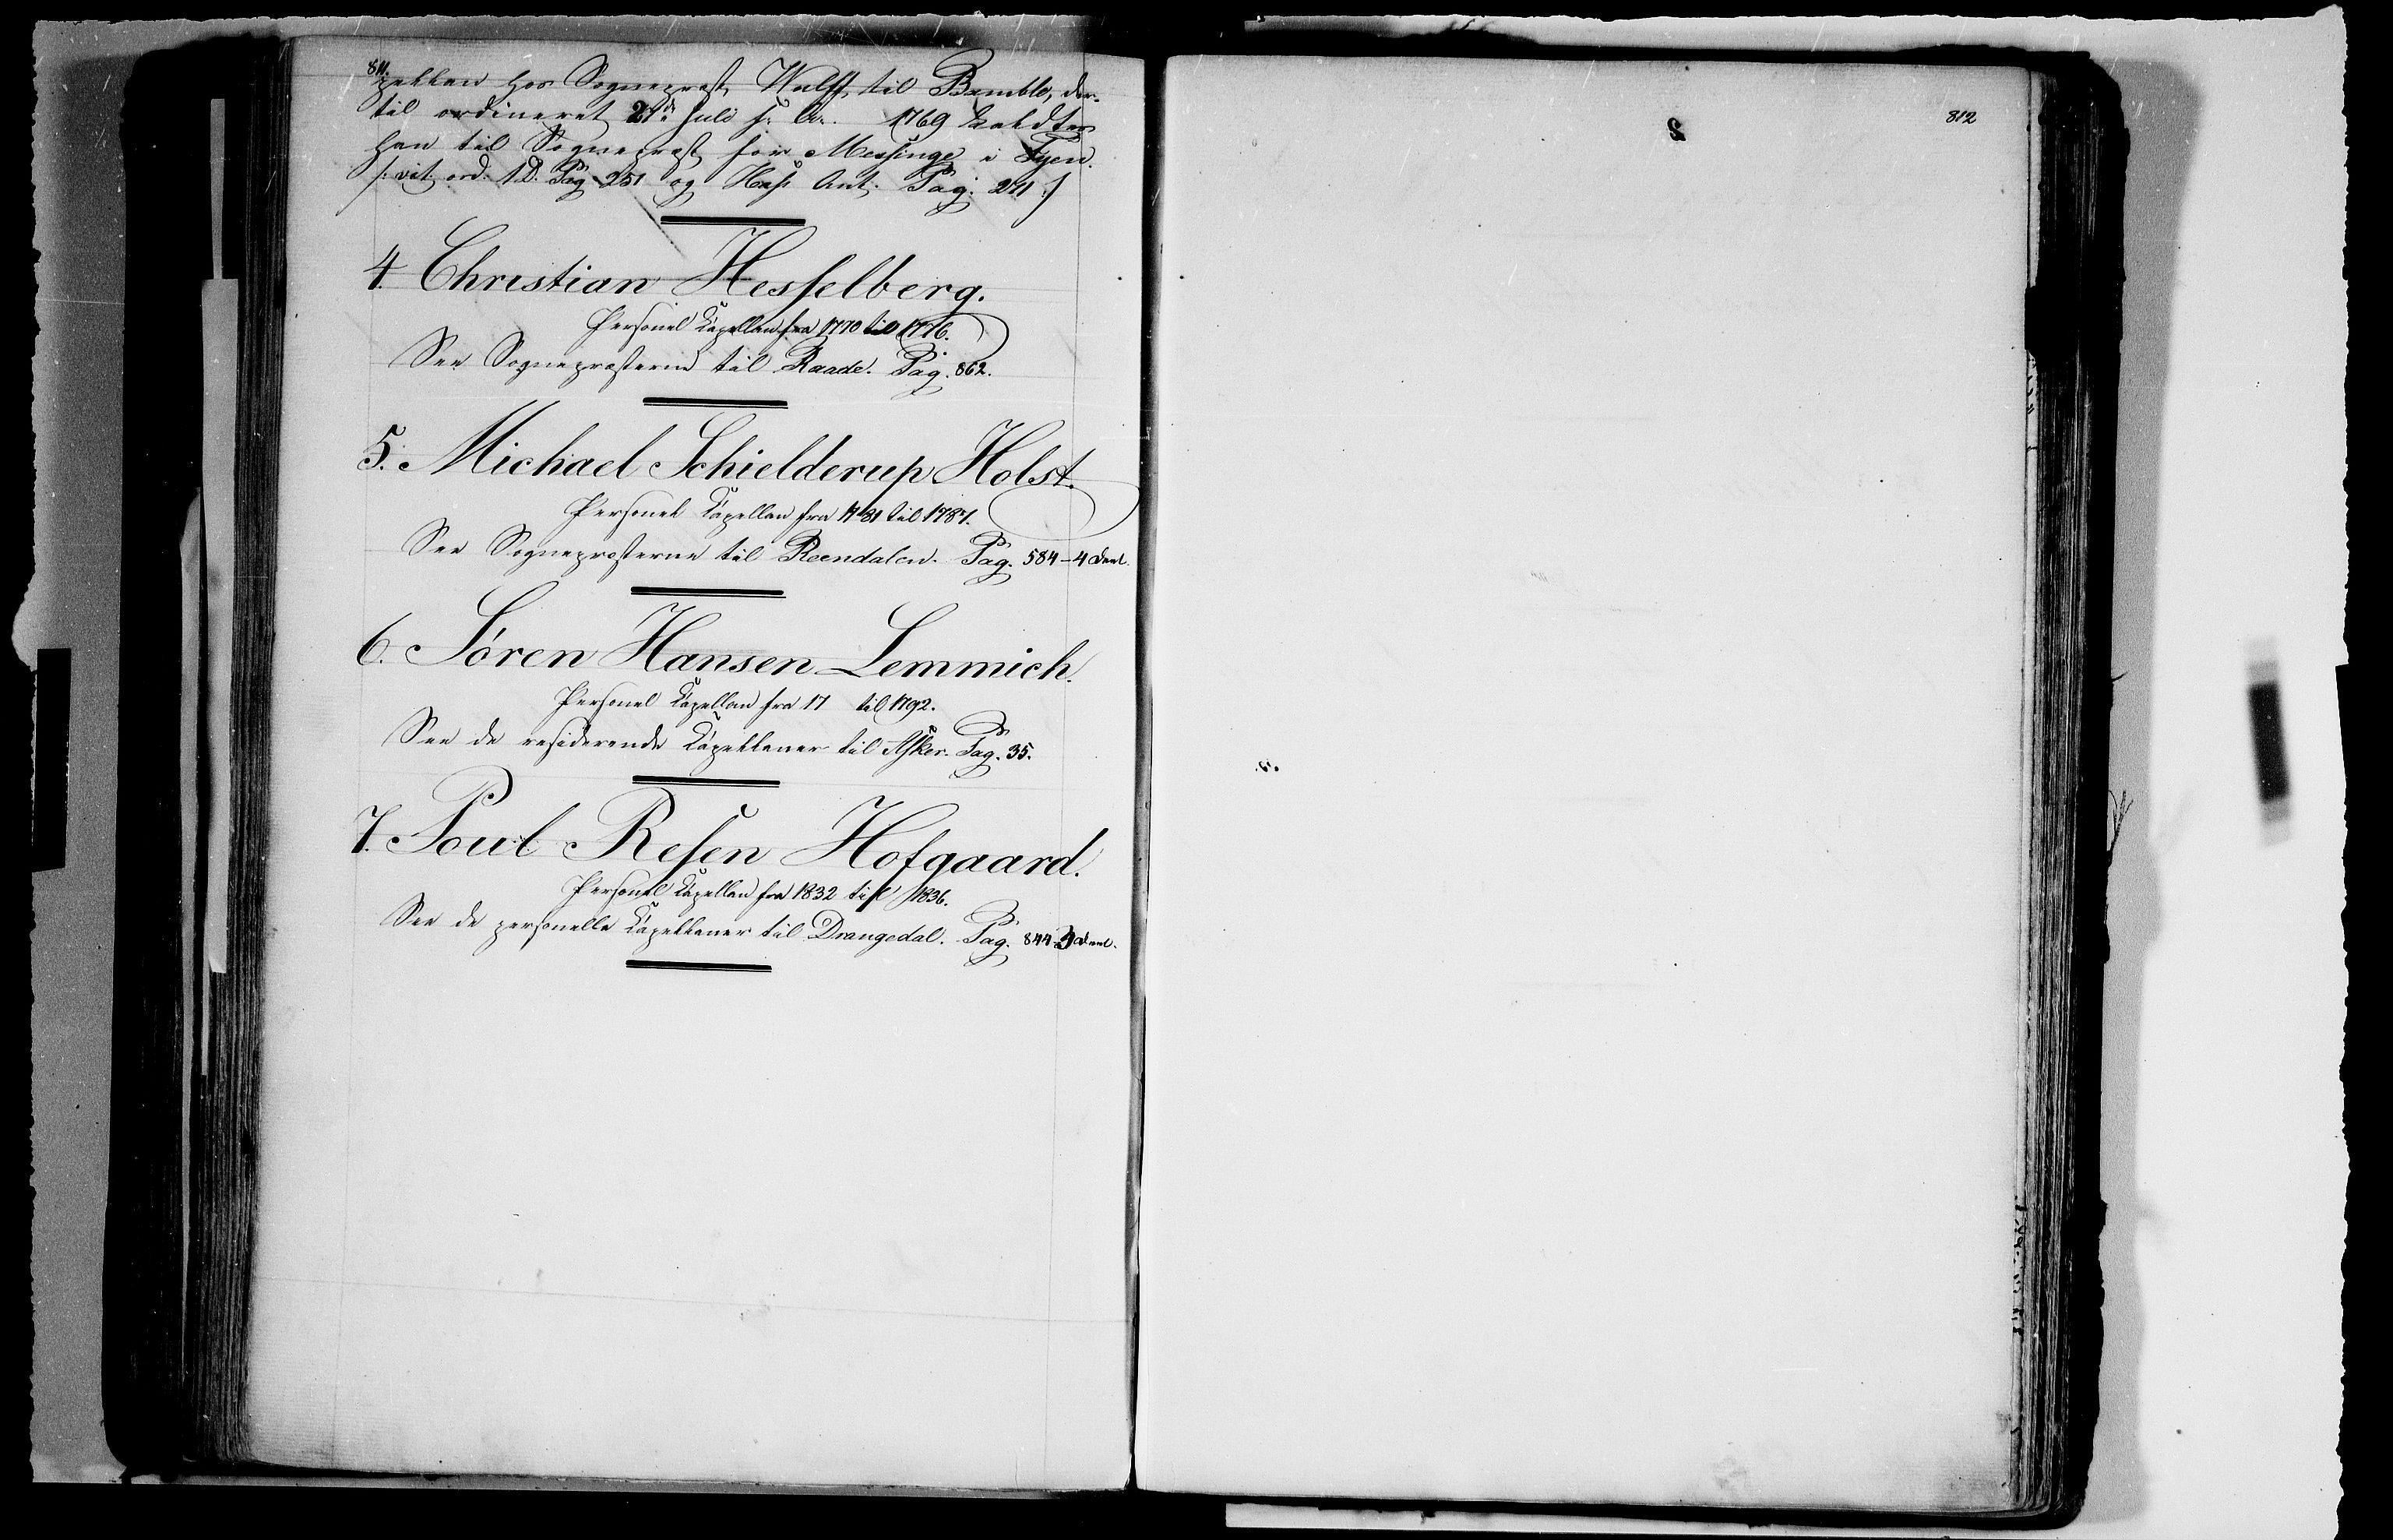 811.
pellan hos Sognepræst Wulff til Bamble, der-
til ordineret 21de Juli s: A:. 1769 kaldtes
han til Sognepræst for Messinge i Fyen.
/: vit. ord. 1 D. Pag 251 og Hess Ant. Pag. 271 :/
4. Christian Hesselberg.
Personel Capellan fra 1770 til 1776.
See Sognepræsterne til Raade. Pag. 862.
5. Michael Schielderup Holst.
Personel Capellan fra 1781 til 1787.
See Sognepræsterne til Reendalen. Pag. 584 - 4 Deel.
6. Søren Hansen Lemmich.
Personel Capellan fra 17 til 1792.
See de residerende Capellaner til Asker. Pag. 35.
7. Poul Resen Hofgaard.
Personel Capellan fra 1832 til 1836.
See de personelle Capellaner til Drangedal. Pag. 844 - 3 Deel.
812